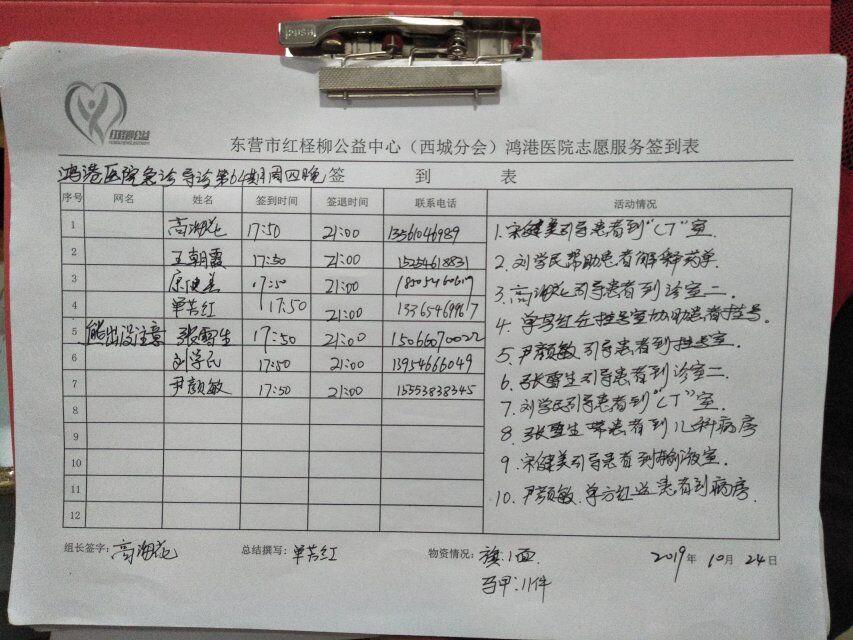 PUSH
红柽柳公益
东营市红柽柳公益中心（西城分会）鸿港医院志愿服务签到表
鸿港医院急诊导诊第64期周四晚 签到表
序号 网名 姓名 签到时间 签退时间 联系电话 活动情况
1 高海花 17:50 21:00 13561046989
2 王朝霞 17:50 21:00 15254618831
3 17:50 21:00
4 单芳红 17:50 21:00
5 熊出没注意 张雪生 17:50 21:00 15066070022
6 刘学民 17:50 21:00 13954666049
7 尹颜敏 17:50 21:00 15553838345
8
9
10
11
12
1. 宋健美引导患者到“CT”室.
2. 刘学民帮助患者解释药单.
3. 高海花引导患者到诊室二.
4. 单芳红在挂号室协助患者挂号.
5. 尹颜敏引导患者到挂号室.
6. 张雪生引导患者到诊室二.
7. 刘学民引导患者到“CT”室.
8. 张雪生带患者到儿科病房
9. 宋健美引导患者到输液室.
10. 尹颜敏、单芳红送患者到病房.
组长签字：高海花 总结撰写：单芳红 物资情况：旗：1面 2019年10月24日
马甲：11件